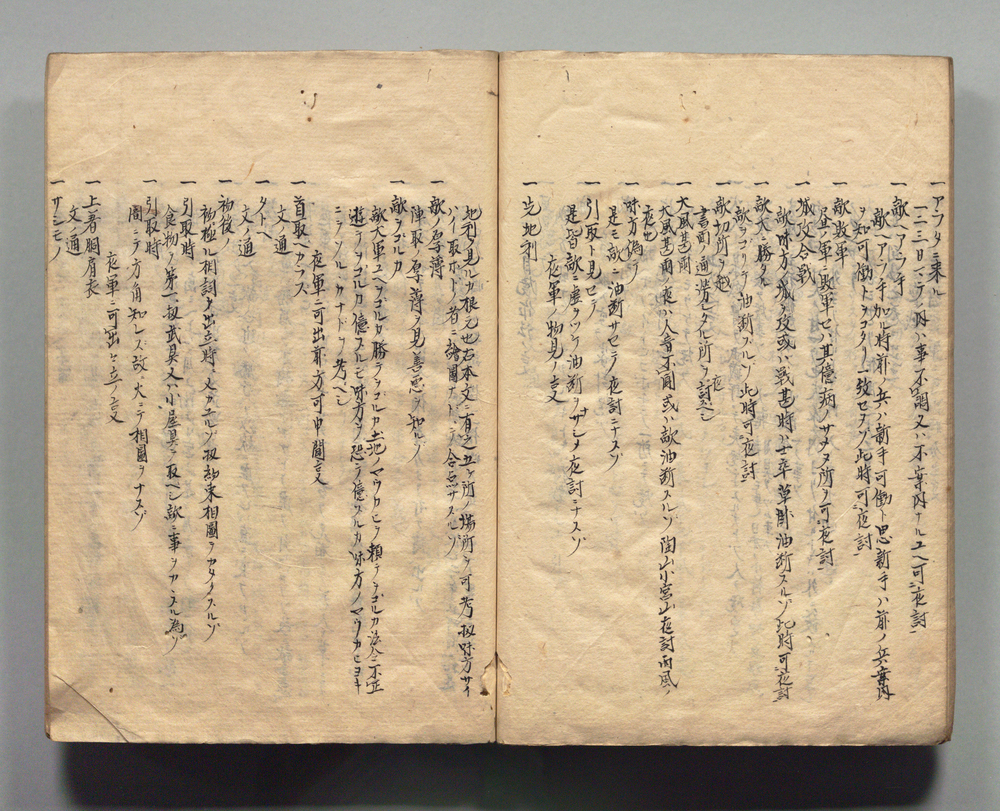 一 アラタニ来ル
一二三日ハミラ内ハ事不調又ハ不案内ナルユヘ可夜討
一 敵ヘアラ手
敵ヘアラ手加ル時前ノ兵ハ新手可働ト思新手ハ前ノ兵案内
ヲ知可働トヲコタリ一致セヌゾ此時可夜討
一 敵敗軍
昼ノ軍ニ敗軍セバ其臆病ノサメヌ所ヲ可夜討
一 城攻合戦
敵味方ノ城ヲ攻或ハ戦甚時ハ士卒草臥油断スルゾ此時可夜討
一 敵大ニ勝タル
敵ヲコリテ油断スルゾ此時可夜討
一 敵切所ヲ越
書面ノ通労レタル所ヲ夜討スベシ
一 大風甚雨
大風甚雨ノ夜ハ人音不聞或ハ敵油断スルゾ陶山小宮山夜討雨風ノ
夜也
一 味方偽ヲ
是ニ敵ニ油断サセテ夜討ニナスゾ
一 引取ト見セテ
是皆敵ニ虚ヲツケ油断ヲサセテ夜討ニナスゾ
夜軍ノ物見ノ言
一 先地利
地利ヲ見ルガ根元也右本文ニ有之五ヶ所ノ場所ヲ可考扨味方サイ
ハイ取ホドノ者ニ絵図ナドニテ合点サスルゾ
一 敵ノ厚薄
陣取ノ厚薄ヲ見善悪ヲ知ルゾ
一 敵ヲゴルカ
敵大軍ユヘヲゴルカ勝テヲゴルカ土地ノマウケヒヲ頼テヲゴルカ法令不正
遊テヲゴルカ臆スルモ味方ヲ恐テ臆スルカ味方ノマウケヒヨキ
ニヲソルヽカナドヽ考ベシ
夜軍ニ可出前方可申聞言
一 首取ベカラズ
文ノ通
一 タトヘ
文ノ通
一 初後ノ
初極ル相詞ヲ出立時ニ又カエルゾ扨約束相図ヲカタクスルゾ
一 引取時
食物ヲ第一扨武具又ハ小屋具ヲ取ベシ敵ニ事ヲカヽスル為ゾ
一 引取時
闇ニテ方角知レズ故ニ火ニテ相図ヲナスゾ
夜軍ニ可出出立ノ言
一 上着胴肩衣
文ノ通
一 サシモノ